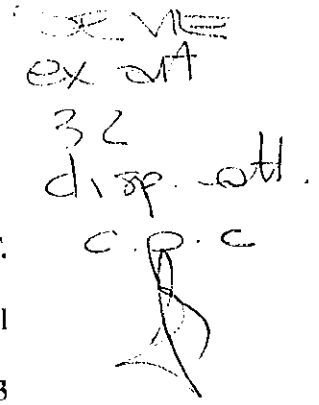 ex art
32
disp. att.
c.p.c